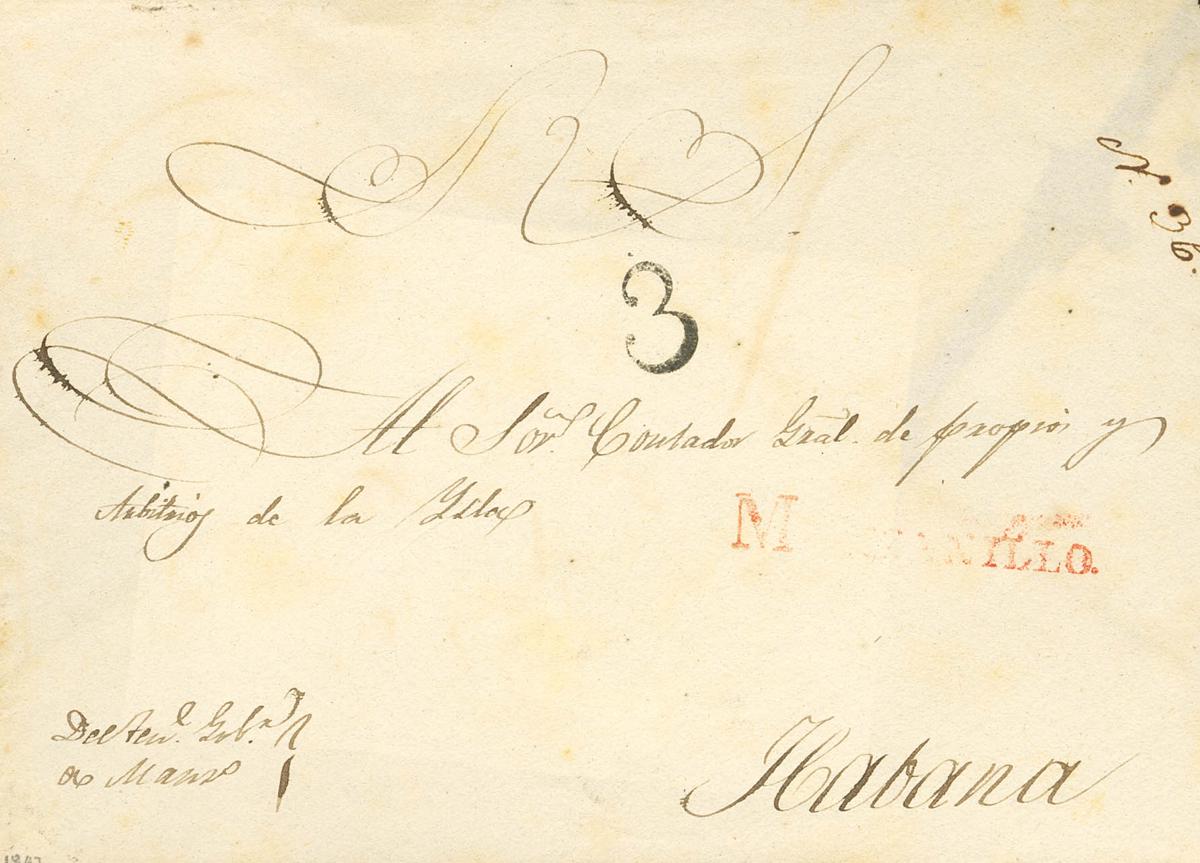 R S
N. 36.
3
Al Sor. Contador Gral. de propios y
Arbitrios de la Ysla
M ANILLO.
Del Ten.e Gob.r
de Manz.o
Habana